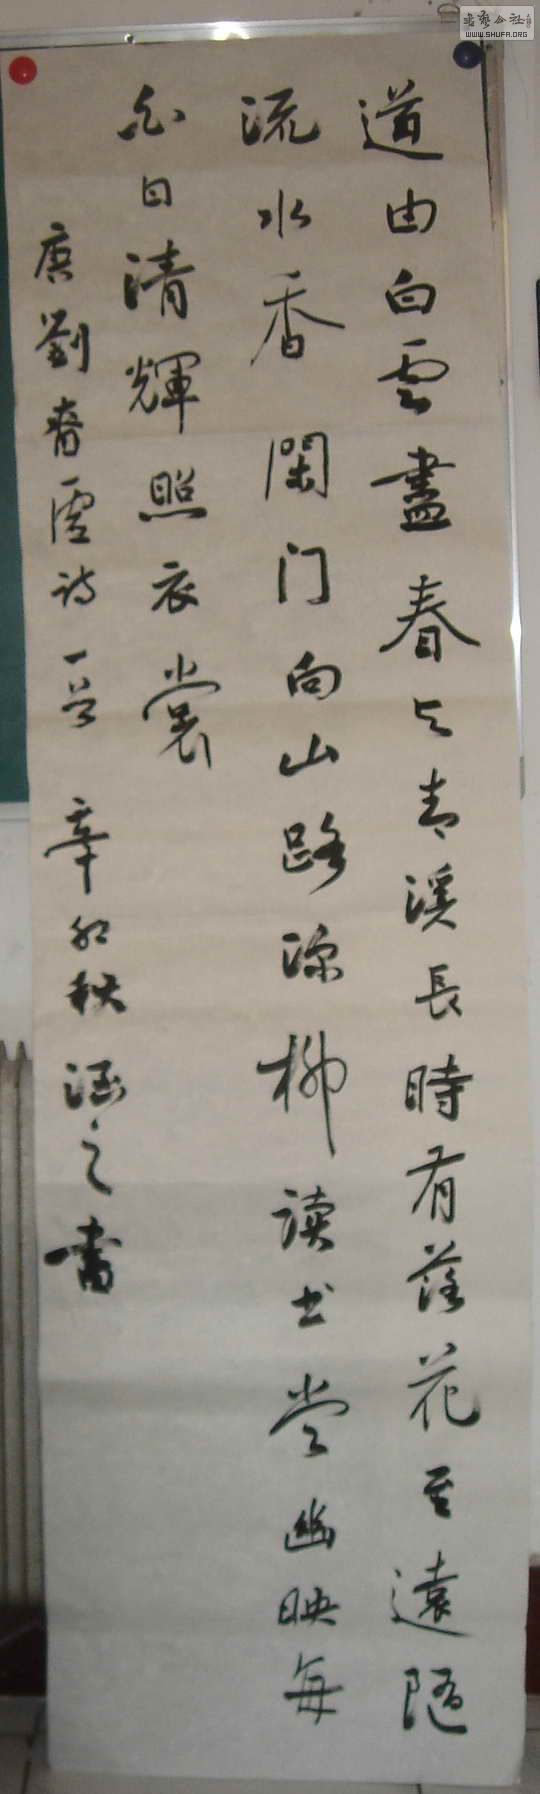 道由白雲盡春与青溪長時有落花至遠隨
流水香閑门向山路深柳读书堂幽映每
白日清輝照衣裳
唐劉眘虚诗一首 辛卯秋 涵之書
書藝公社
WWW.SHUFA.ORG